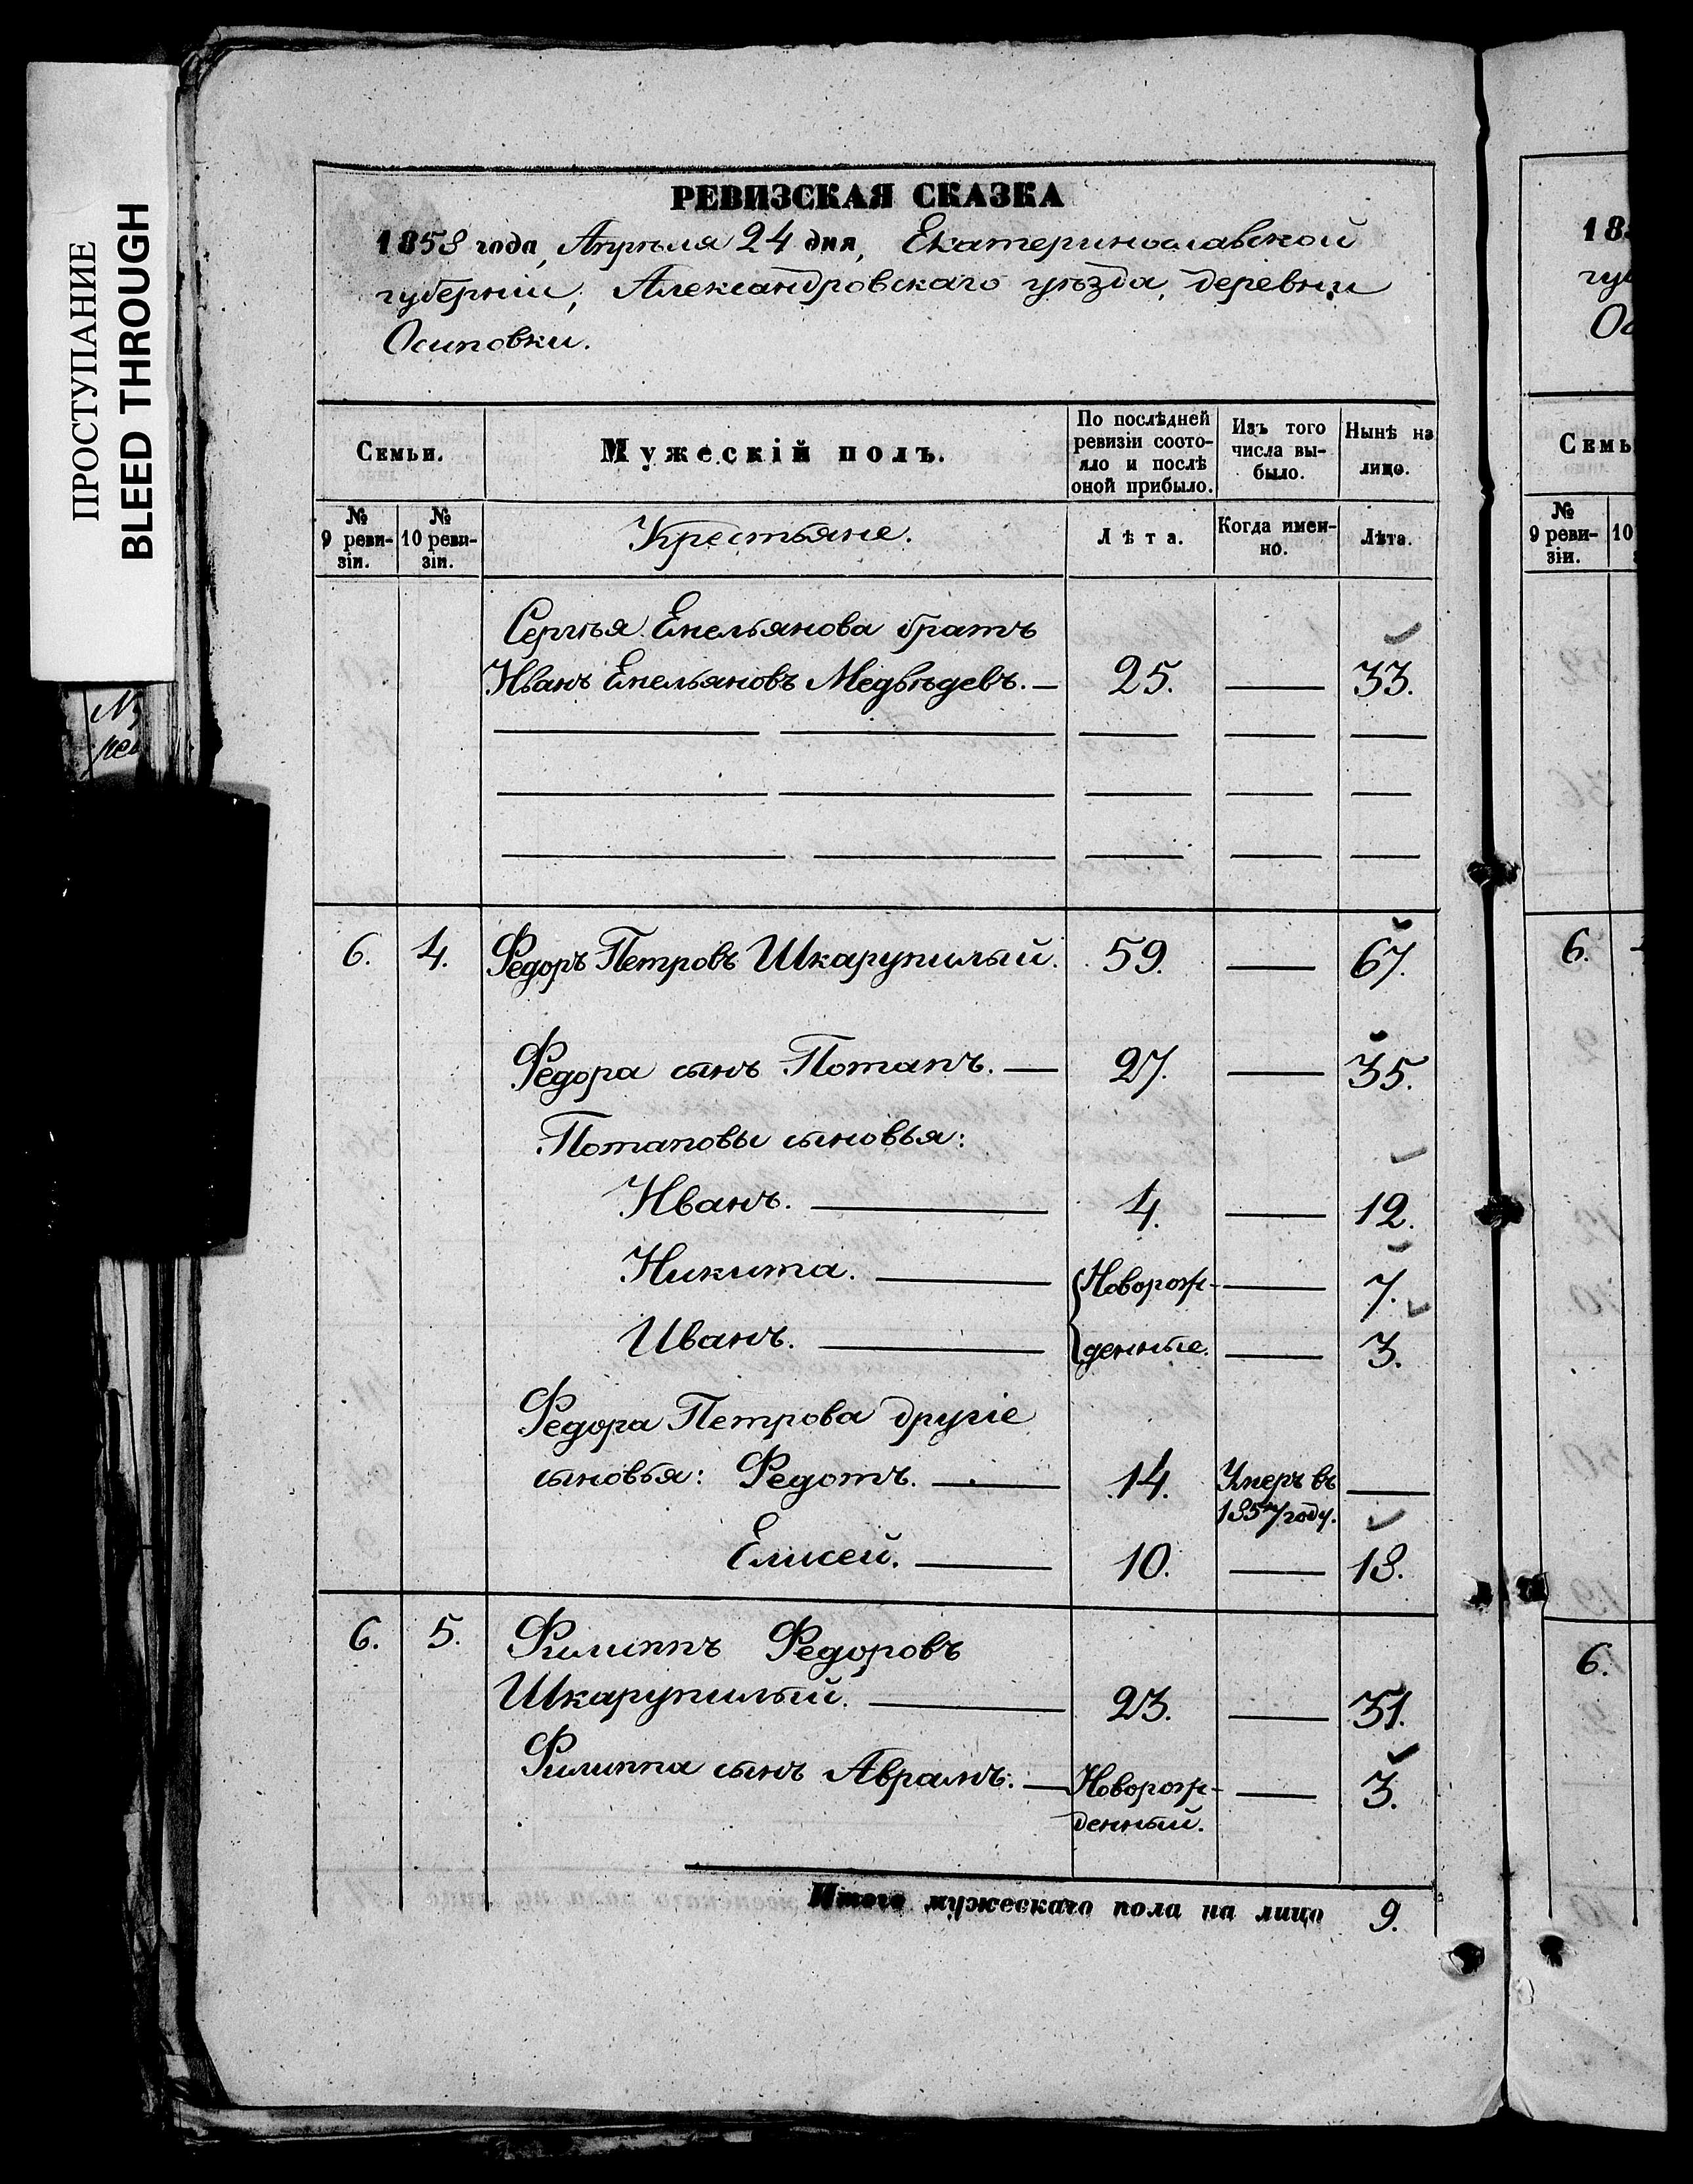 ПРОСТУПАНИЕ
BLEED THROUGH
РЕВИЗСКАЯ СКАЗКА
1858 года, Апрѣля 24 дня, Екатеринославской
губерніи, Александровскаго уѣзда, деревни
Осиповки.
Семьи. Мужескій полъ. По послѣдней ревизіи состо-яло и послѣ оной прибыло. Изъ того числа вы-было. Нынѣ на лицо.
№ 9 реви-зіи. № 10 реви-зіи. Крестьяне. Лѣта. Когда имен-но. Лѣта.
Сергѣя Емельянова братъ
Иванъ Емельяновъ Медвѣдевъ. — 25. — 33.
6. 4. Федоръ Петровъ Шкарупилый. 59. — 67.
Федора сынъ Потапъ. — 27. — 35.
Потаповы сыновья:
Иванъ. — 4. — 12.
Никита. — Новорож- — 7.
Иванъ. — денные. — 3.
Федора Петрова другіе
сыновья: Федотъ. — 14. Умеръ въ —
185 году.
Елисей. — 10. — 18.
6. 5. Филиппъ Федоровъ
Шкарупилый. — 23. — 31.
Филиппа сынъ Аврамъ. — Новорож- — 3.
денный.
Итого мужескаго пола на лицо 9.
18
губ
Ос
Семь
№ 9 реви-зіи. 10
6.
6.